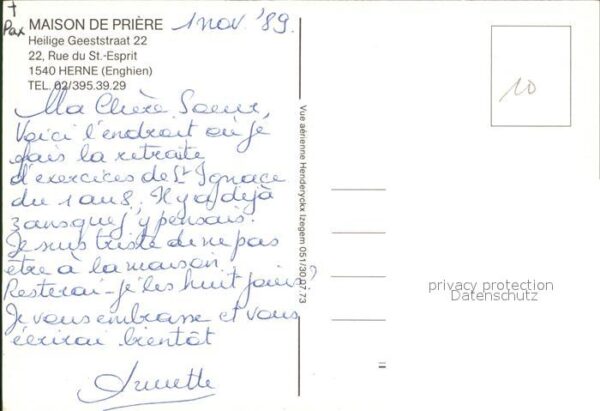 †
Pax MAISON DE PRIÈRE 1 nov. '89.
Heilige Geeststraat 22
22, Rue du St.-Esprit
1540 HERNE (Enghien)
TEL. 02/395.39.29
Ma Chère Soeur,
Voici l'endroit où je
fais la retraite
d'exercices de St Ignace
du 1 au 8. Il y a déjà
3 ans que j'y pensais.
Je suis triste de ne pas
être à la maison.
Resterai-je les huit jours?
Je vous embrasse et vous
écrirai bientôt
Vue aérienne Henderyckx Izegem 051/30.07.73
10
privacy protection
Datenschutz